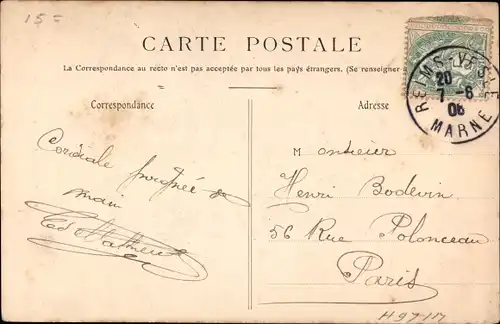 15 =
CARTE POSTALE
La Correspondance au recto n'est pas acceptée par tous les pays étrangers. (Se renseigner
Correspondance
Adresse
REIMS-VESLE
20
7-6
06
MARNE
Cordiale poignée de
main
Monsieur
Henri Bodevin
56 Rue Polonceau
Paris
H971M